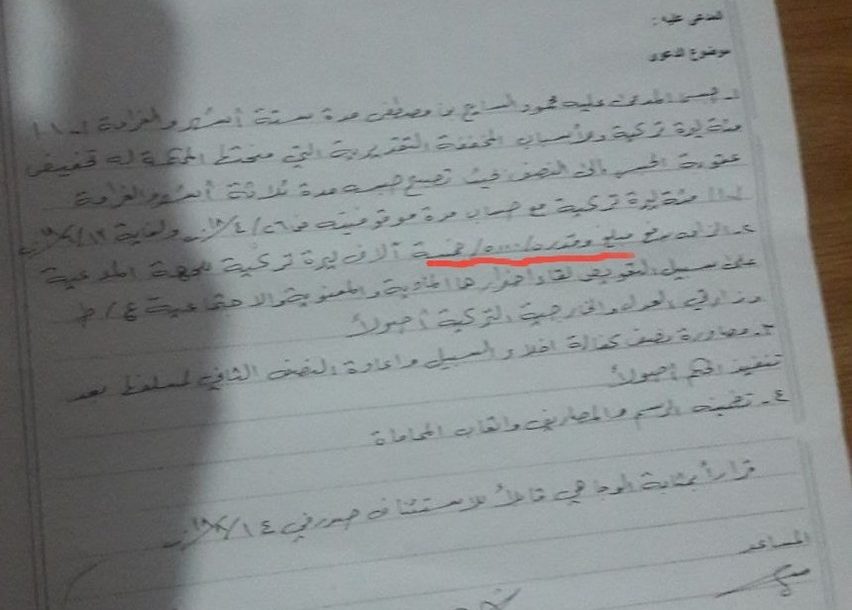 المدعى عليه :
موضوع الدعوى
١- حبس المدعى عليه محمود السايح بن مصطفى مدة ستة أشهر والغرامة /١٠٠/
مئة ليرة تركية وللأسباب المخففة التقديرية التي منحتها المحكمة له تخفيض
عقوبة الحبس إلى النصف بحيث تصبح حبسه مدة ثلاثة أشهر والغرامة
/١٠٠/ مئة ليرة تركية مع حساب مدة موقوفيته من ٢٦/٤/ ولغاية
٢- الزامه بدفع مبلغ وقدره /٥٠٠٠/ خمسة آلاف ليرة تركية للجهة المدعية
على سبيل التعويض لقاء أضرارها المادية والمعنوية والاجتماعية ع/ط
وزارتي العدل والخارجية التركية أصولاً
٣- مصادرة نصف كفالة اخلاء السبيل واعادة النصف الثاني بعد
تنفيذ الحكم أصولاً
٤- تضمينه الرسم والمصاريف واتعاب المحاماة
قراراً بمثابة الوجاهي قابلاً للاستئناف صدر في ١٤/
المساعد